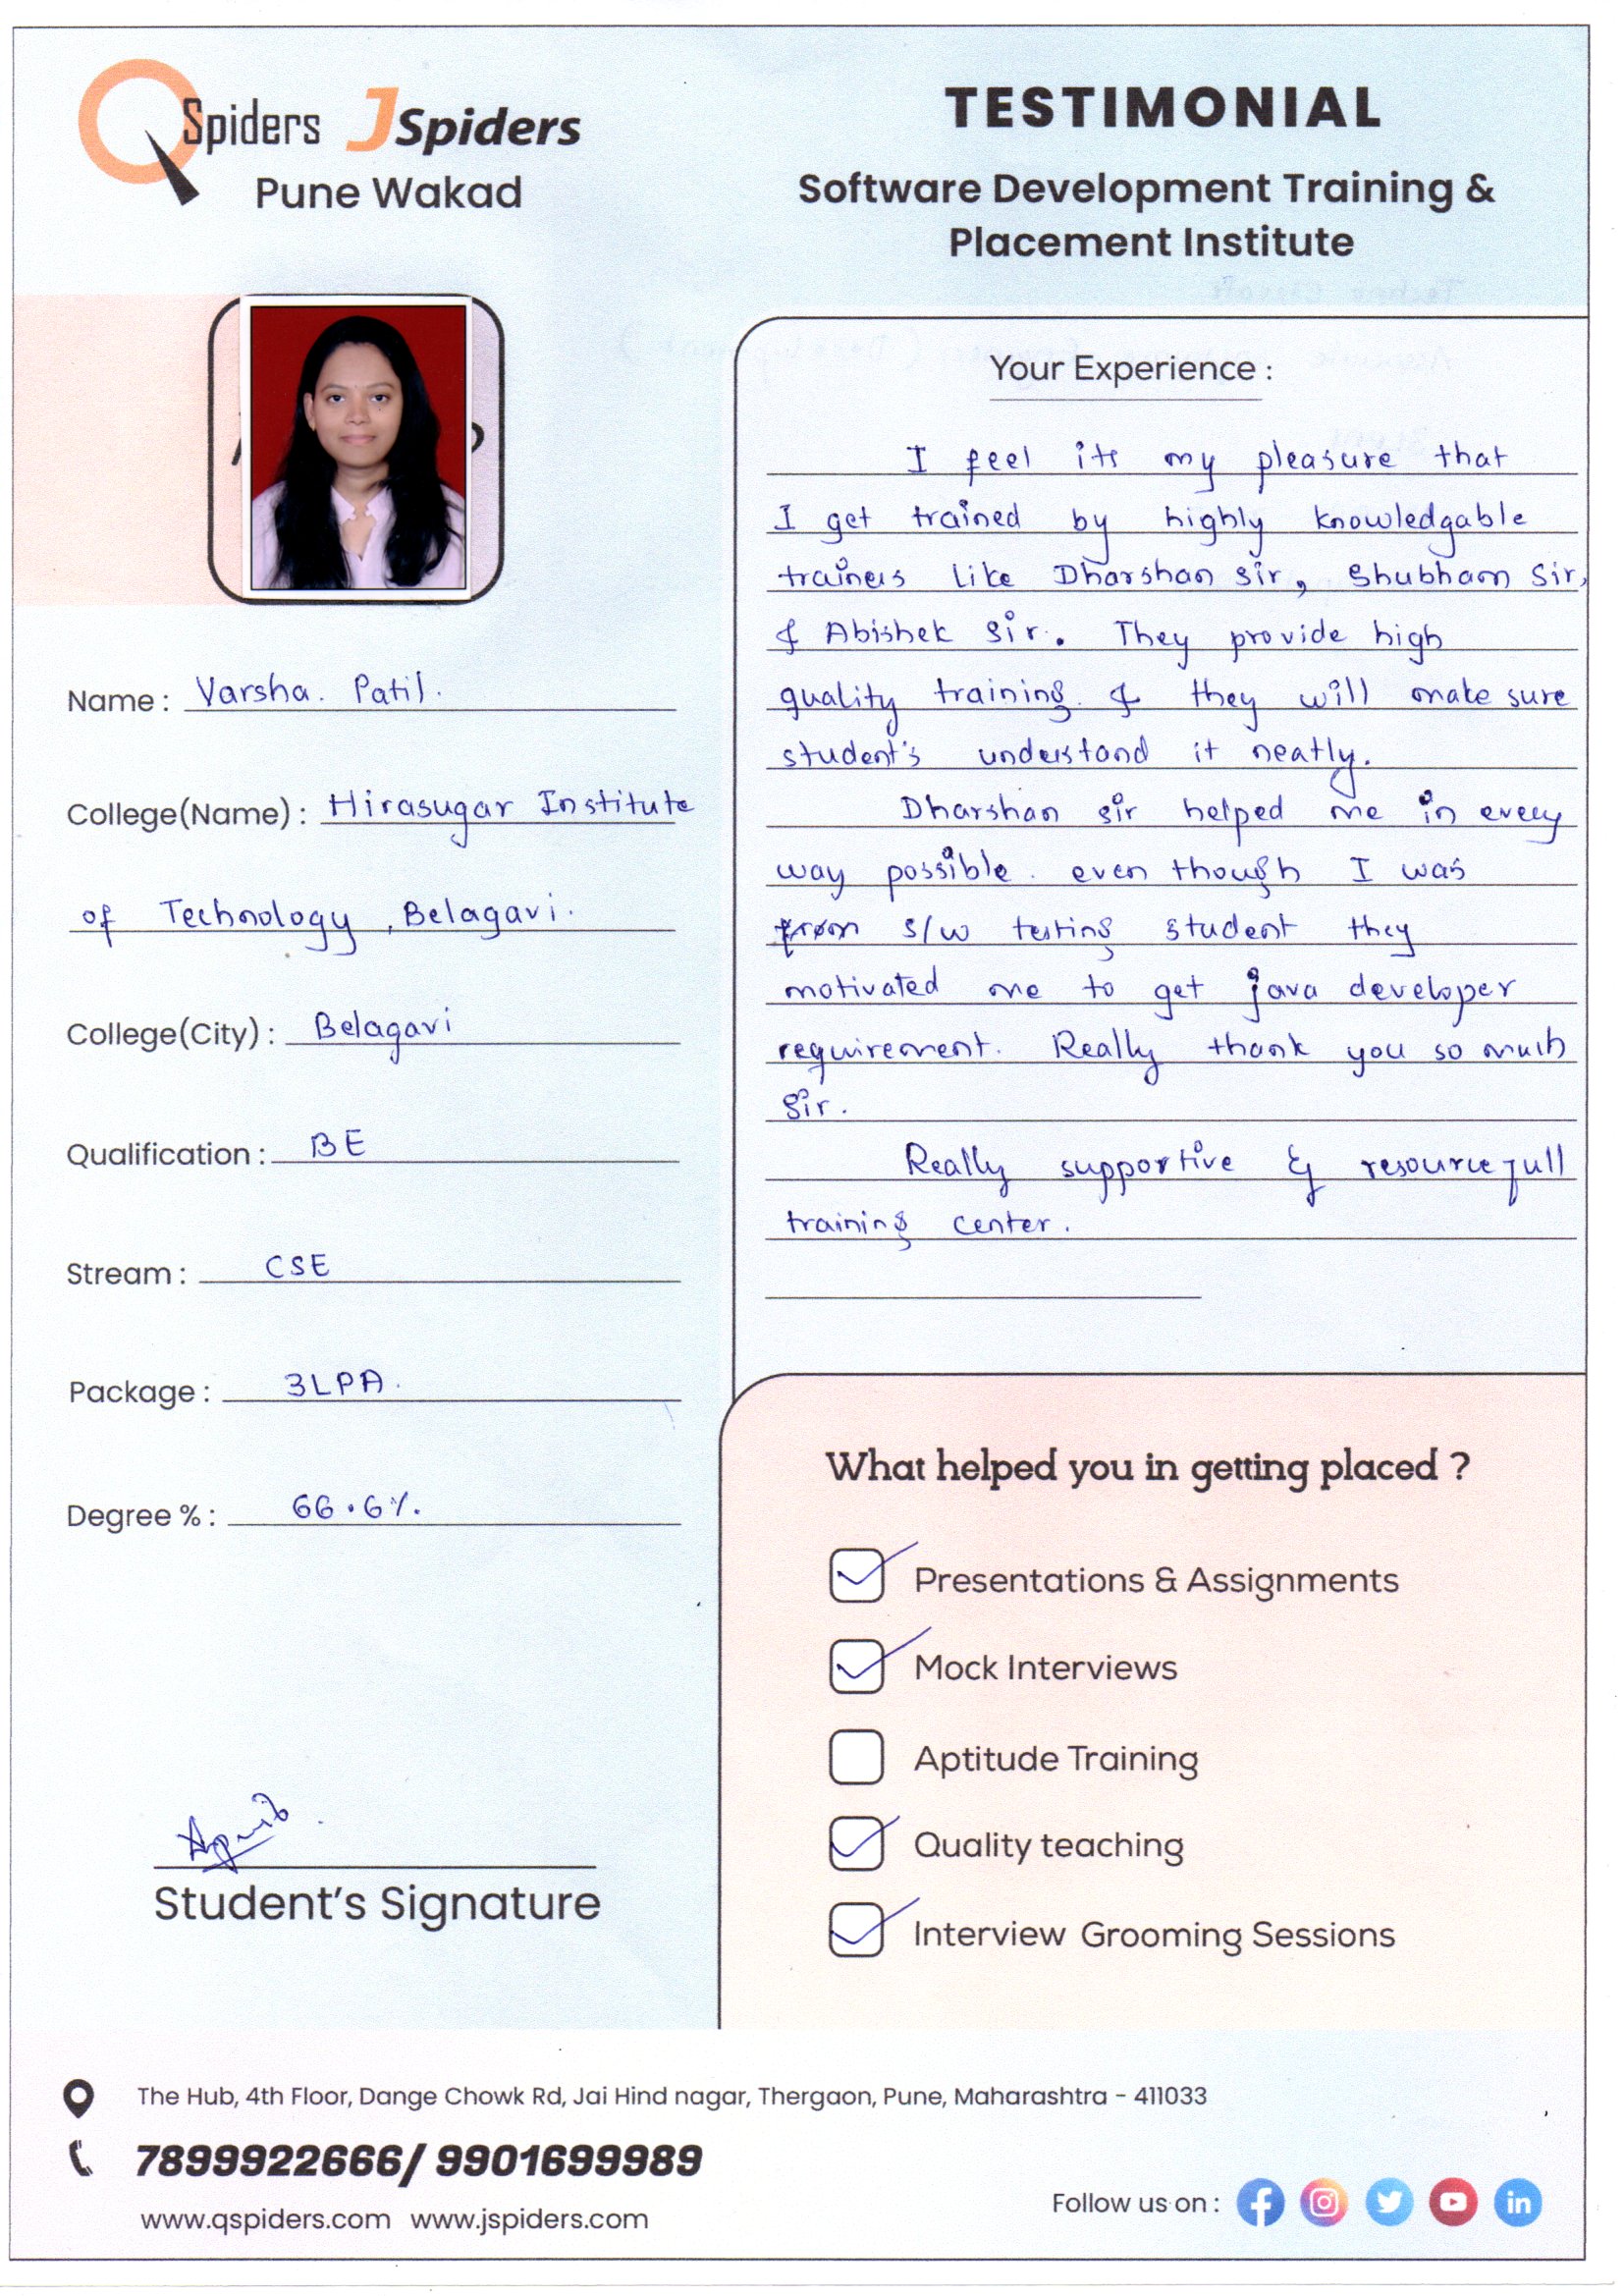 QSpiders JSpiders
Pune Wakad
TESTIMONIAL
Software Development Training &
Placement Institute
Name : Varsha. Patil.
College(Name) : Hirasugar Institute
of Technology , Belagavi.
College(City) : Belagavi
Qualification : BE
Stream : CSE
Package : 3LPA.
Degree % : 66.6%.
Student's Signature
Your Experience :
I feel its my pleasure that
I get trained by highly knowledgable
trainers like Dharshan sir, Shubham Sir,
& Abishek Sir. They provide high
quality training & they will make sure
student's understand it neatly.
Dharshan sir helped me in every
way possible. even though I was
from s/w testing student they
motivated me to get java developer
requirement. Really thank you so much
Sir.
Really supportive & resourcefull
training center.
What helped you in getting placed ?
Presentations & Assignments
Mock Interviews
Aptitude Training
Quality teaching
Interview Grooming Sessions
The Hub, 4th Floor, Dange Chowk Rd, Jai Hind nagar, Thergaon, Pune, Maharashtra - 411033
7899922666/ 9901699989
www.qspiders.com www.jspiders.com
Follow us on :